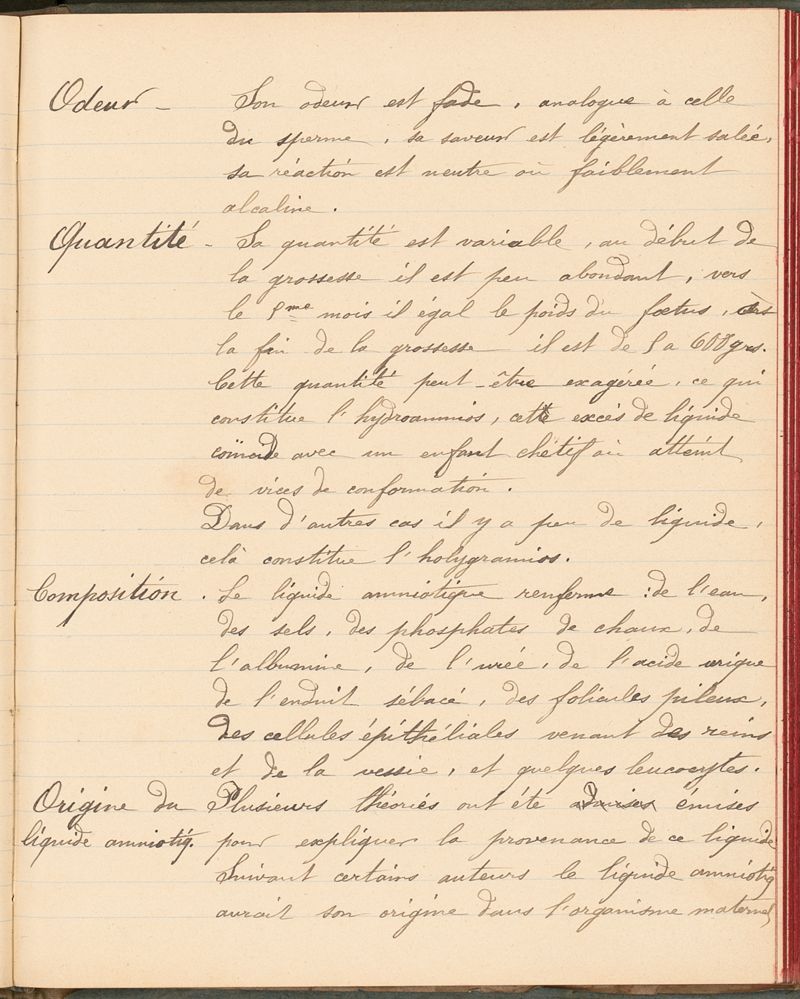 Odeur - Son odeur est fade, analogue à celle
du sperme, sa saveur est légèrement salée,
sa réaction est neutre où faiblement
alcaline.
Quantité - Sa quantité est variable, au début de
la grossesse il est peu abondant, vers
le 5me mois il égal le poids du fœtus,
la fin de la grossesse il est de 5 a 600 grs.
Cette quantité peut-être exagérée, ce qui
constitue l'hydroamnios, cette excés de liquide
coïncide avec un enfant chétif où atteint
de vices de conformation.
Dans d'autres cas il y a peu de liquide,
celà constitue l'holygramios.
Composition. Le liquide amniotique renferme : de l'eau,
des sels, des phosphates de chaux, de
l'albumine, de l'urée, de l'acide urique
de l'enduit sébacé, des folicules pileux,
des cellules épithéliales venant des reins
et de la vessie, et quelques leucocytes.
Origine du Plusieurs théories ont été émises
liquide amniotiq. pour expliquer la provenance de ce liquide
Suivant certains auteurs le liquide amniotiq
aurait son origine dans l'organisme maternel,